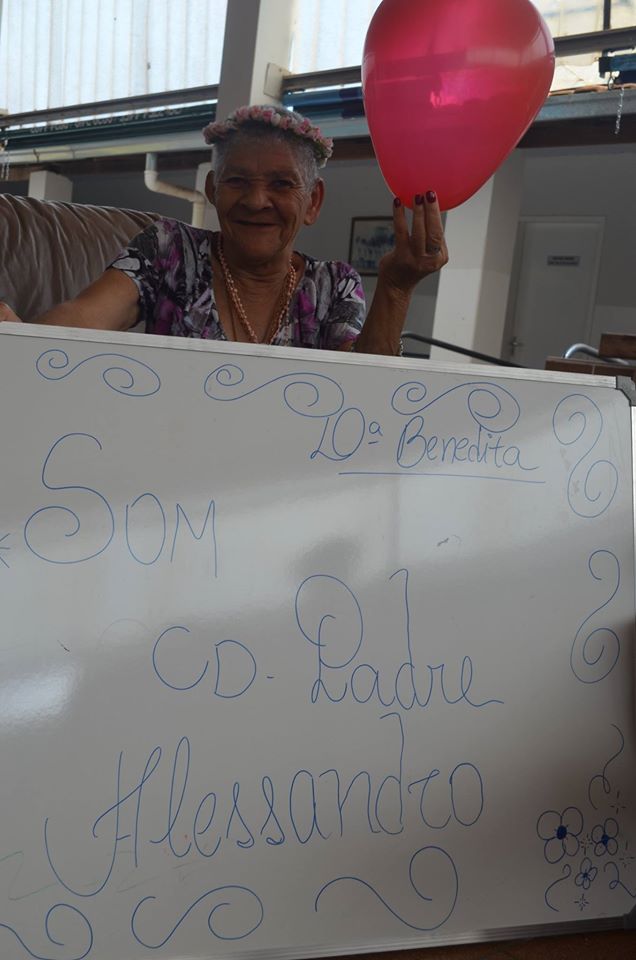 Dª Benedita
SOM
CD - Padre
Alessandro